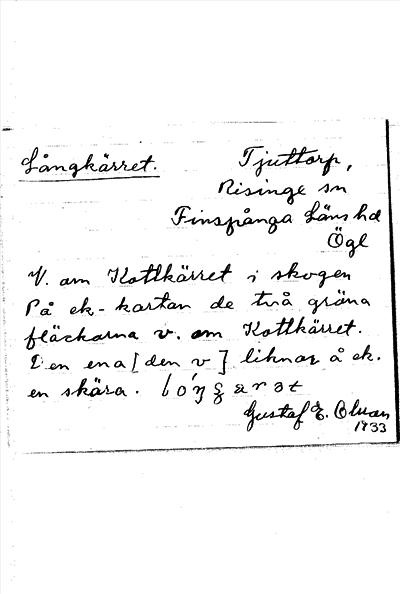 Långkärret.
Tjuttorp,
Risinge sn
Finspånga Läns hd
Ögl
V. om Kottkärret i skogen
På ek-kartan de två gröna
fläckarna v. om Kottkärret.
Den ena [den v] liknar å ek.
en skära.
Gustaf E. Olsson
1933